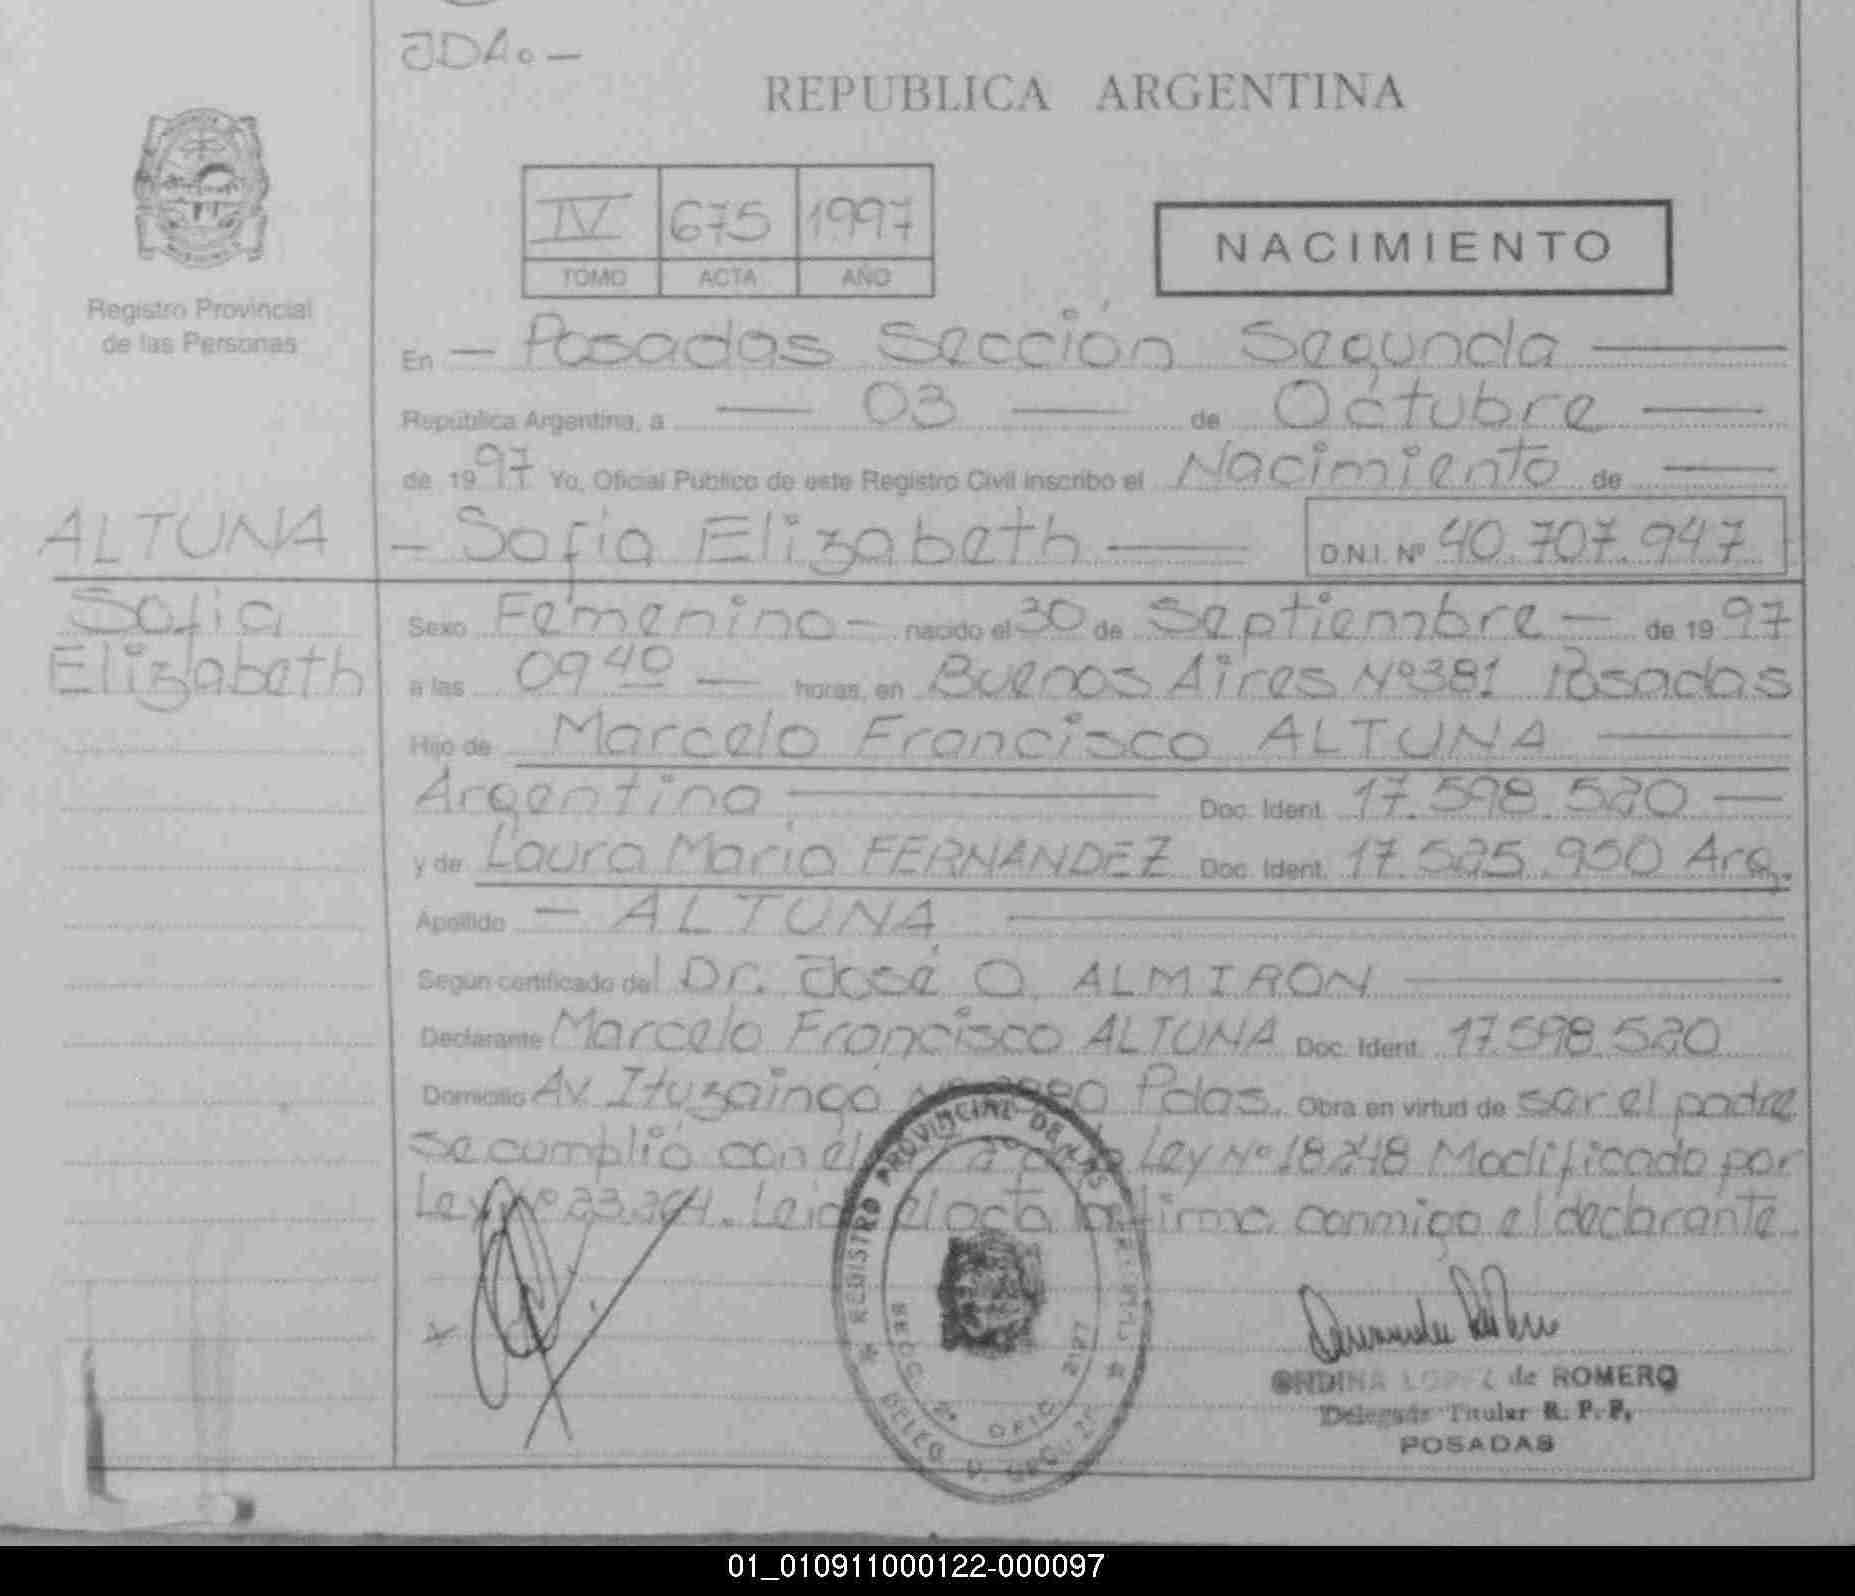 JDA. —
REPUBLICA ARGENTINA
IV 675 1997
TOMO ACTA AÑO
NACIMIENTO
Registro Provincial
de las Personas
En — Posadas Sección Segunda —
República Argentina, a — 03 — de Octubre —
de 1997 Yo, Oficial Público de este Registro Civil inscribo el Nacimiento de —
ALTUNA — Sofia Elizabeth — D.N.I. Nº 40.707.947
Sofia
Elizabeth
Sexo Femenino — nacido el 30 de Septiembre — de 1997
a las 09 40 — horas, en Buenos Aires Nº 381 Posadas
Hijo de Marcelo Francisco ALTUNA —
Argentino — Doc. Ident. 17.598.520 —
y de Laura Maria FERNANDEZ Doc. Ident. 17.525.950 Arg.
Apellido — ALTUNA —
Según certificado del Dr. José O. ALMIRON —
Declarante Marcelo Francisco ALTUNA Doc. Ident. 17.598.520
Domicilio Av. Ituzaingó Pdas. Obra en virtud de ser el padre
se cumplió con el Ley Nº 18.248 Modificado por
Ley Nº 23.264. Leida el acta la firma conmigo el declarante.
X
REGISTRO PROVINCIAL DE LAS
SECC. 2ª OFIC. 2127
ONDINA LOPEZ de ROMERO
Delegada Titular R. P. P.
POSADAS
01_010911000122-000097